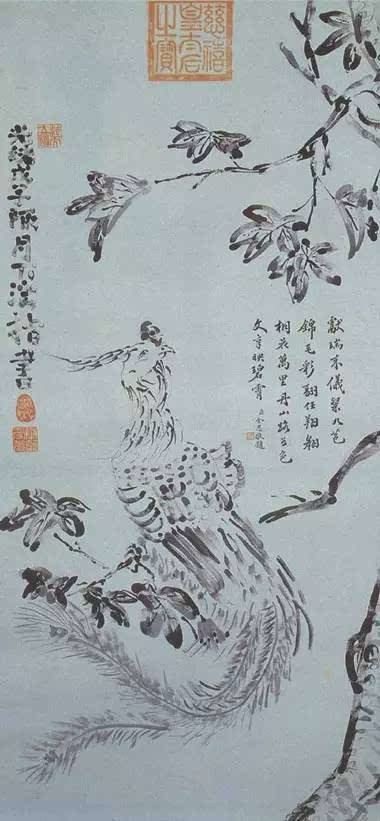 慈禧
皇太后
之寶
獻瑞來儀九苞
錦毛彩翮任翔翱
桐花萬里丹山路五色
文章映碧霄 臣敬題
光緒戊子月下浣指